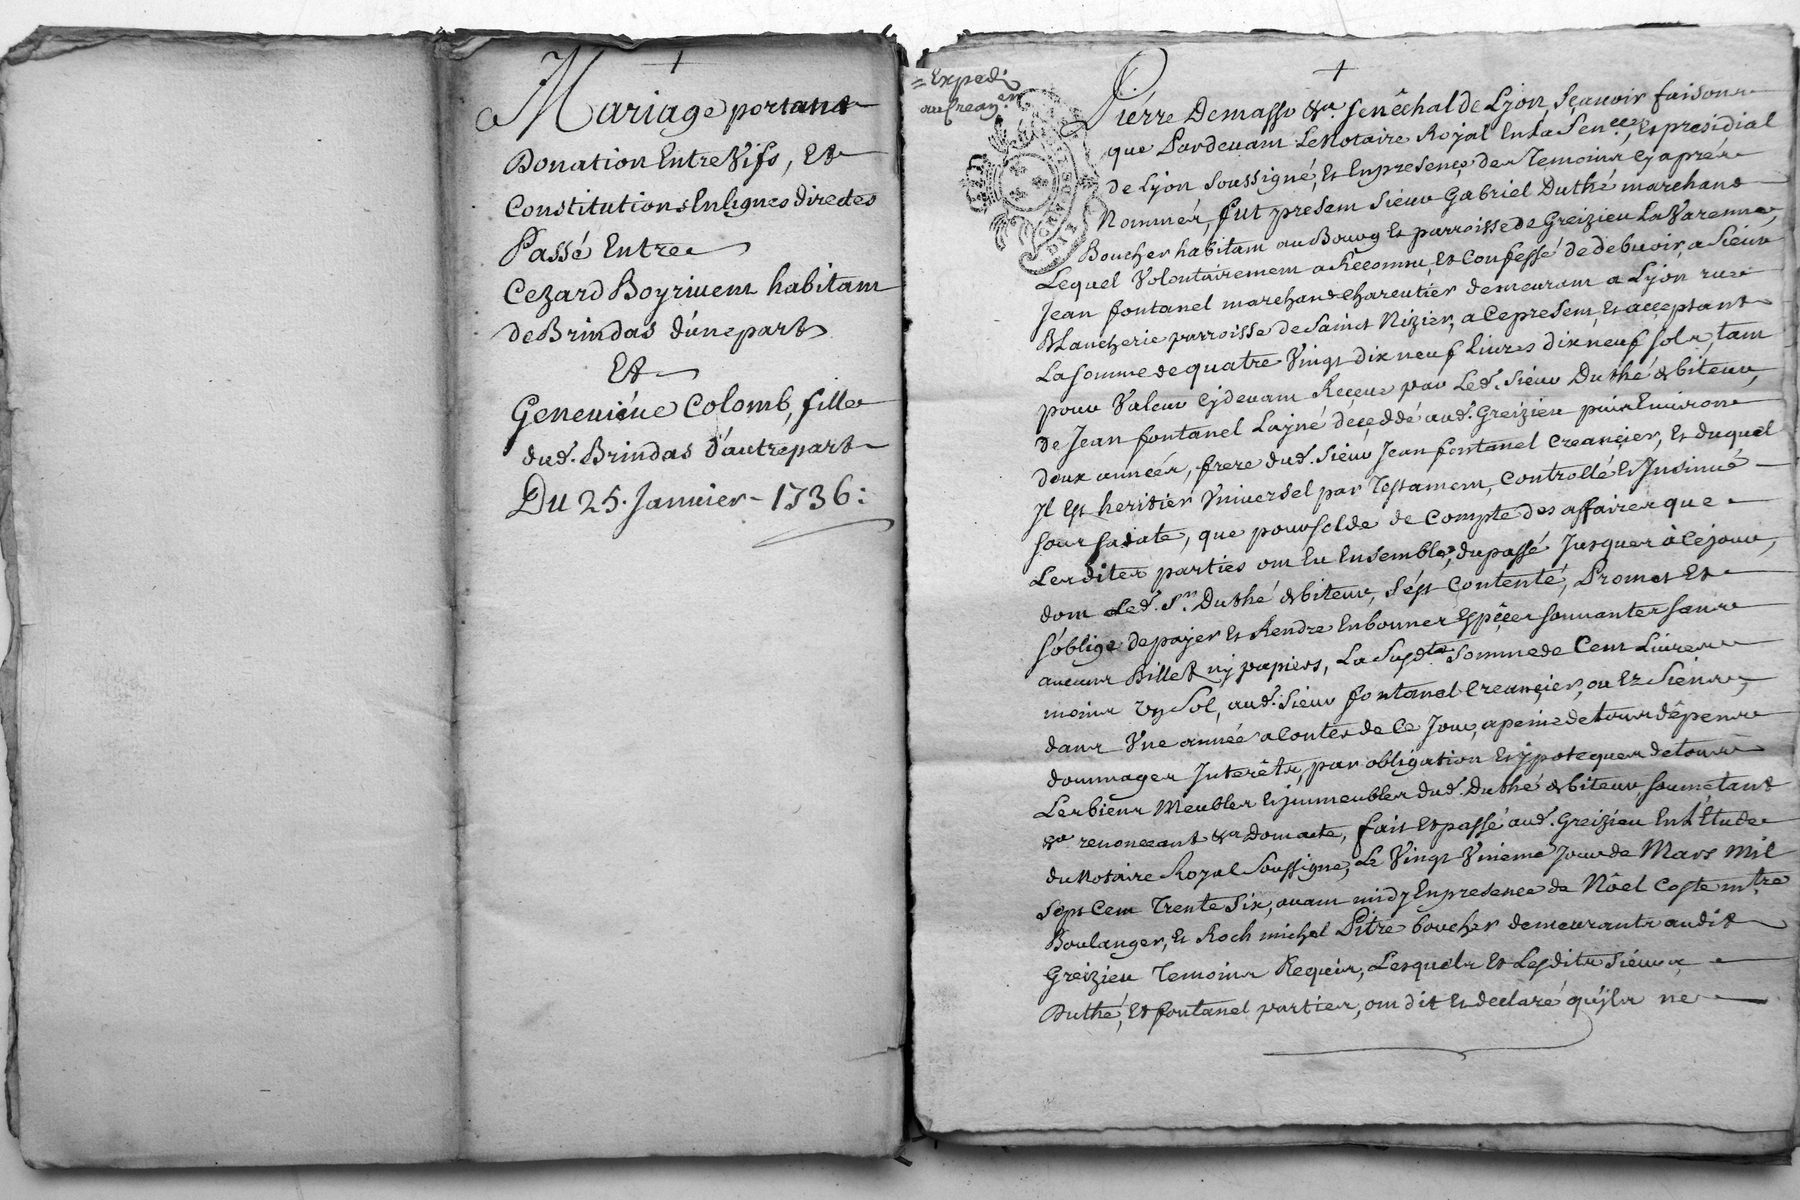 +
Mariage portant
Donation Entre Vifs, Et
Constitutions En lignes directes
Passé Entre
Cezard Boyrivent habitant
de Brindas d'une part
Et
Genevieve Colomb, fille
dud. Brindas d'autre part
Du 25. Janvier - 1736:
= Exped.
au Crean.er
+
Pierre Demasso &a. Senêchal de Lyon, sçavoir faisons
que Pardevant Le Notaire Royal En La Sen.ée, Et presidial
de Lyon soussigné, Et En presence des Temoins cy aprés
Nommés, fut present Sieur Gabriel Duthé marchand
Boucher habitant au Bourg Et parroisse de Greizieu La Varenne,
Lequel Volontairement a Reconnu, Et Confessé de debvoir, a Sieur
Jean fontanel marchand Chareutier demeurant a Lyon rue
BLancherie parroisse de Sainct Nizier, a Ce present, Et acceptant
La somme de quatre Vingt dix neuf Livres dix neuf sols, tant
pour Valeur Cy devant Reçeue par Led. Sieur Duthé debiteur,
de Jean fontanel L'ayné deceddé aud. Greizieu puis Environ
deux années, frere dud. Sieur Jean fontanel Creançier, Et duquel
Jl Est heritier Vniversel par Testament, Controllé Et Jnsinué
sous sa date, que pour solde de Compte des affaires que
Lesdites parties ont Eu Ensemble, du passé Jusques à Ce jour,
dont Led. S.r Duthé debiteur, s'est Contenté, Promet Et
s'oblige de payer Et Rendre En bonnes Espèces sonnantes sans
aucuns Billet ny papiers, La Susd.te Somme de Cent Livres
moins Vn Sol, aud. Sieur fontanel Creançier, ou Ez Siens,
dans Vne année a Conter de Ce Jour, a peine de tous dêpens
dommages Jnterêts, par obligation Et ypoteques de tous
Les biens Meubles Et jmmeubles dud. Duthé debiteur, soumetant
&a renonceant &a Dont acte, fait Et passé aud. Greizieu En L'Etude
du Notaire Royal Soussigné, Le Vingt Vnieme Jour de Mars Mil
sept Cent Trente Six, avant midy En presence de Nôel Coste m.tre
Boulanger, Et Roch michel Pitre boucher demeurants audit
Greizieu Temoins Requis, Lesquels Et Lesdits Sieurs
Duthé, Et fontanel parties, ont dit Et declaré qu'jls ne